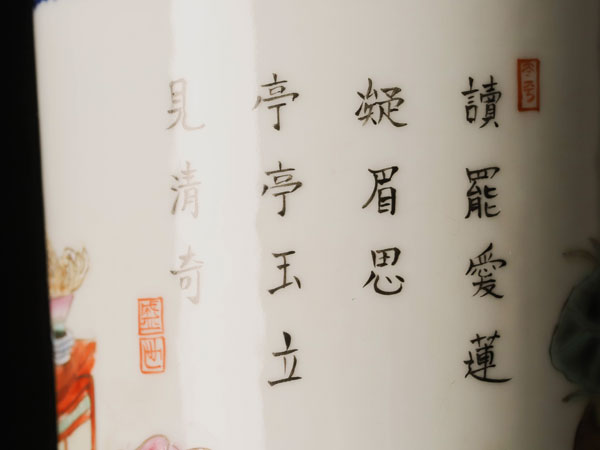 讀罷愛蓮
凝眉思
亭亭玉立
見清奇